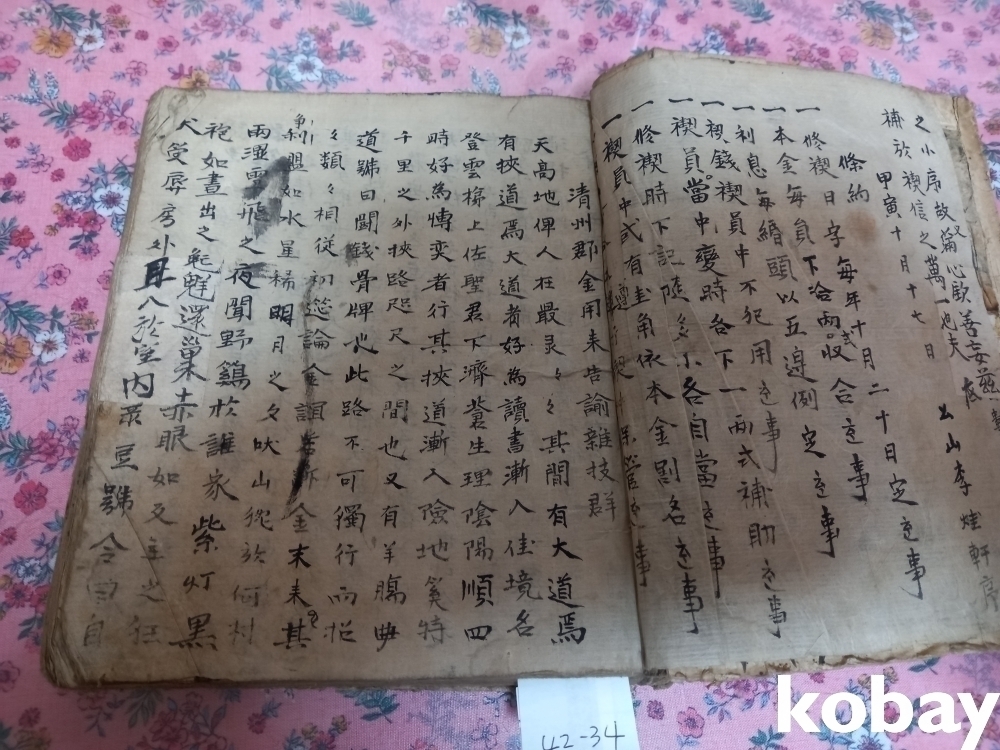 之小序故又蕭心歟善妄玆
補於禊信之萬一也夫
甲寅十月十七日 山李煃軒序
條約
一修禊日字每年十月二十日定之事
一本金每員下合兩式收合之事
一利息每緡頭以五邊例定之事
一禊錢禊員中不犯用之事
一禊員當中變時各下一兩式補助之事
一修禊時下記陸多小各自當之事
一禊員中或有圭角依本金割名之事
淸州郡金用來告諭雜技群
天高地俾人在最灵々其間有大道焉
有挾道焉大道者好為讀書漸入佳境名
登雲梯上佐聖君下濟蒼生理陰陽順四
時好為慱奕者行其挾道漸入險地奚特
千里之外挾路咫尺之間也又有羊膓曲
道號曰鬪錢骨牌也此路不可獨行而從
々類々相從初 論金 金末來其
剩盟如水星稀明月之夕吠山 於何村
雨濕雲飛之夜聞野鷄於誰家紫灯黑
袍如晝出之 魋還巢赤眼如 主之狂
犬受辱房外且入於室內 豆號令 自
kobay
42-34